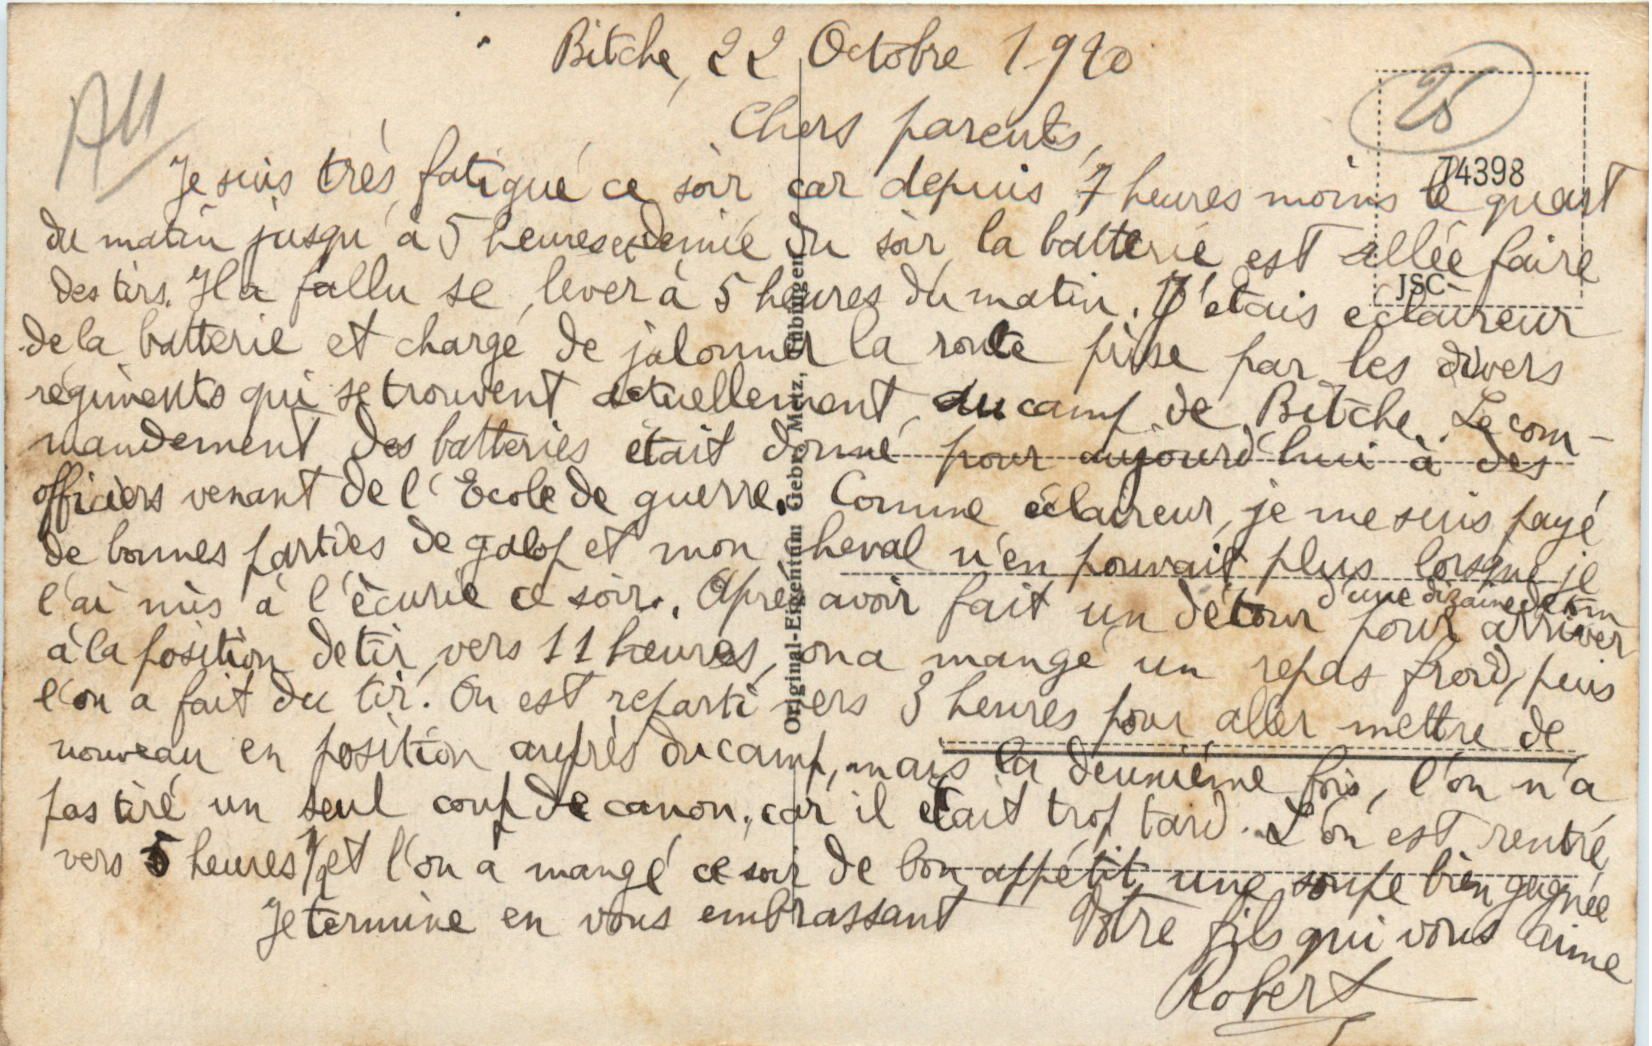 Bitche, 22 Octobre 1920
Chers parents,
Je suis très fatigué ce soir car depuis 7 heures moins le quart
du matin jusqu'à 5 heures et demie du soir la batterie est allée faire
des tirs. Il a fallu se lever à 5 heures du matin. J'étais éclaireur
de la batterie et chargé de jalonner la route prise par les divers
régiments qui se trouvent actuellement au camp de Bitche. Le com-
mandement des batteries était donné pour aujourd'hui à des
officiers venant de l'Ecole de guerre. Comme éclaireur, je me suis payé
de bonnes parties de galop et mon cheval n'en pouvait plus lorsque je
l'ai mis à l'écurie ce soir. Après avoir fait un détour d'une dizaine de km pour arriver
à la position de tir, vers 11 heures, on a mangé un repas froid, puis
l'on a fait du tir. On est reparti vers 3 heures pour aller mettre de
nouveau en position auprès du camp, mais la deuxième fois, l'on n'a
pas tiré un seul coup de canon, car il était trop tard. L'on est rentré
vers 5 heures 1/2 et l'on a mangé ce soir de bon appétit une soupe bien gagnée
Je termine en vous embrassant Votre fils qui vous aime
Robert
25
74398
JSC
Original-Eigentum Gebr. Metz, Tübingen